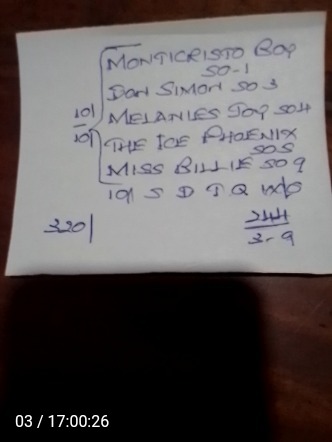 MONTICRISTO BOY
SO-1
DON SIMON SO 3
101
MELANIES JOY SO4
101
THE ICE PHOENIX
SO5
MISS BILLIE SO 9
101 S D T Q
320/
244
3-9
03 / 17:00:26